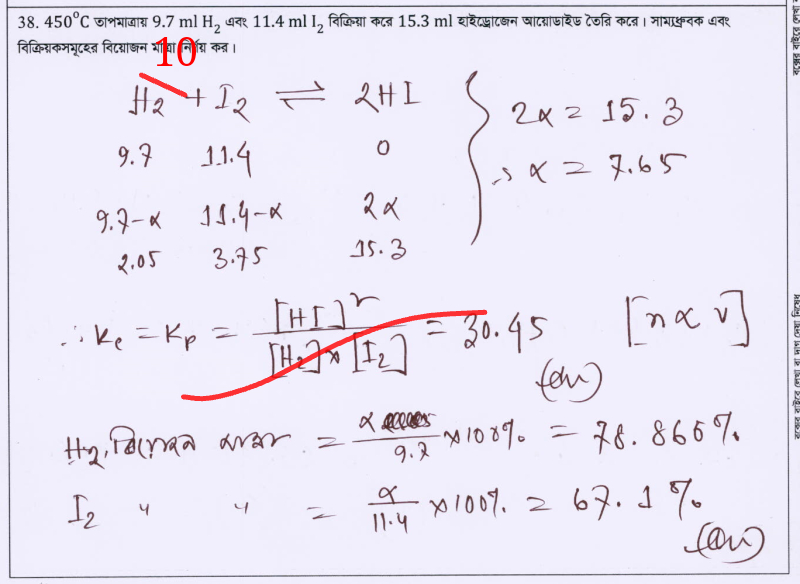 38. 450°C তাপমাত্রায় 9.7 ml H₂ এবং 11.4 ml I₂ বিক্রিয়া করে 15.3 ml হাইড্রোজেন আয়োডাইড তৈরি করে। সাম্যধ্রুবক এবং
বিক্রিয়কসমূহের বিয়োজন মাত্রা নির্ণয় কর।
10
H₂ + I₂ ⇌ 2HI
9.7 11.4 0
9.7-α 11.4-α 2α
2.05 3.75 15.3
2α = 15.3
∴ α = 7.65
∴ Kc = Kp = [HI]² / [H₂]×[I₂] = 30.45 [n ∝ v]
(Ans)
H₂ বিয়োজন মাত্রা = α / 9.7 × 100% = 78.866%
I₂ " " = α / 11.4 × 100% = 67.1%
(Ans)